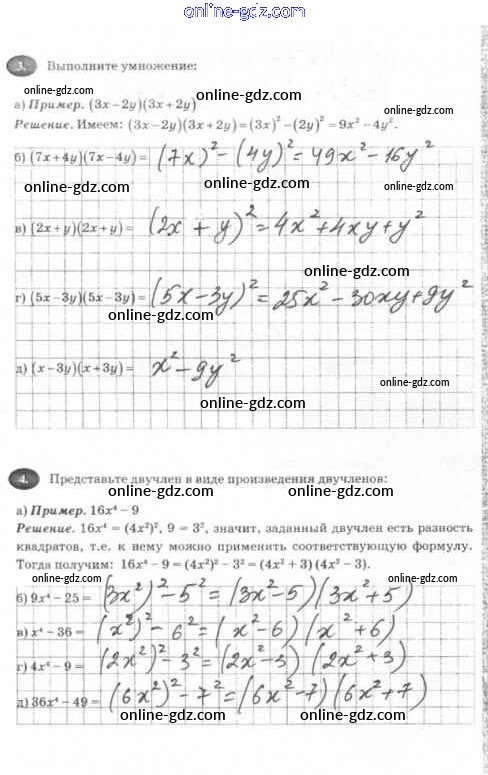 online-gdz.com
3. Выполните умножение:
online-gdz.com online-gdz.com
а) Пример. (3x – 2y)(3x + 2y)
Решение. Имеем: (3x – 2y)(3x + 2y) = (3x)² – (2y)² = 9x² – 4y².
б) (7x + 4y)(7x – 4y) = (7x)² – (4y)² = 49x² – 16y²
online-gdz.com online-gdz.com
в) (2x + y)(2x + y) = (2x + y)² = 4x² + 4xy + y²
online-gdz.com
online-gdz.com
г) (5x – 3y)(5x – 3y) = (5x – 3y)² = 25x² – 30xy + 9y²
online-gdz.com
д) (x – 3y)(x + 3y) = x² – 9y²
online-gdz.com
online-gdz.com
4. Представьте двучлен в виде произведения двучленов:
online-gdz.com online-gdz.com
а) Пример. 16x⁴ – 9
Решение. 16x⁴ = (4x²)², 9 = 3², значит, заданный двучлен есть разность
квадратов, т.е. к нему можно применить соответствующую формулу.
Тогда получим: 16x⁴ – 9 = (4x²)² – 3² = (4x² + 3)(4x² – 3).
online-gdz.com online-gdz.com
б) 9x⁴ – 25 = (3x²)² – 5² = (3x² – 5)(3x² + 5)
в) x⁴ – 36 = (x²)² – 6² = (x² – 6)(x² + 6)
online-gdz.com online-gdz.com
г) 4x⁴ – 9 = (2x²)² – 3² = (2x² – 3)(2x² + 3)
д) 36x⁴ – 49 = (6x²)² – 7² = (6x² – 7)(6x² + 7)
online-gdz.com online-gdz.com
online-gdz.com